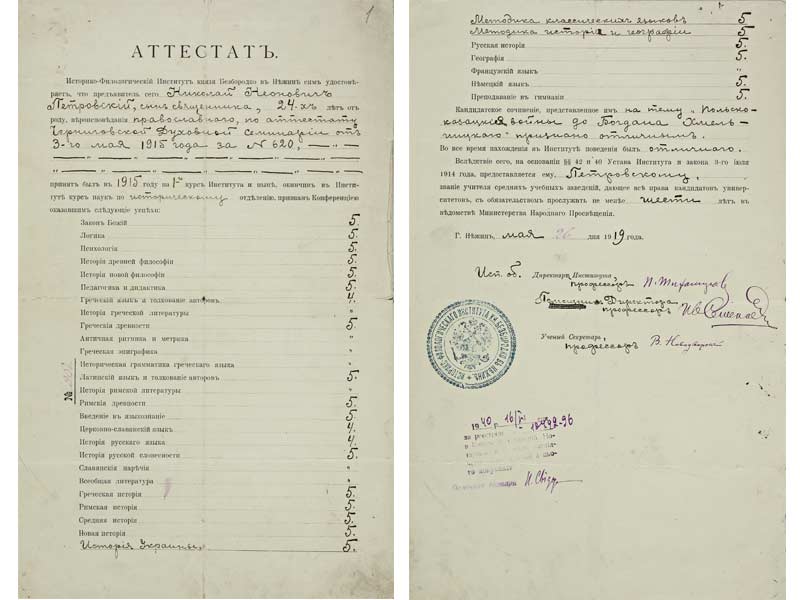 1
АТТЕСТАТЪ.
Историко-Филологическій Институтъ князя Безбородко въ Нѣжинѣ симъ удостовѣ-
ряетъ, что предъявитель сего Николай Неоновичъ
Петровскій, сынъ священника, 24-хъ лѣтъ отъ
роду, вѣроисповѣданія православнаго, по аттестату
Черниговской Духовной Семинаріи отъ
3-го мая 1915 года за № 620,
принятъ былъ въ 1915 году на 1й курсъ Института и нынѣ, окончивъ въ Инсти-
тутѣ курсъ наукъ по историческому отдѣленію, признанъ Конференціею
оказавшимъ слѣдующіе успѣхи:
Законъ Божій 5.
Логика 5.
Психологія 5.
Исторія древней философіи 5.
Исторія новой философіи 5.
Педагогика и дидактика 5.
Греческій языкъ и толкованіе авторовъ 4.
Исторія греческой литературы "
Греческія древности 5.
Античная ритмика и метрика "
Греческая эпиграфика "
Историческая грамматика греческаго языка "
Латинскій языкъ и толкованіе авторовъ 5.
Исторія римской литературы "
Римскія древности 5.
Введеніе въ языкознаніе 5.
Церковно-славянскій языкъ 4.
Исторія русскаго языка 4.
Исторія русской словесности 5.
Славянскія нарѣчія "
Всеобщая литература "
Греческая исторія 5.
Римская исторія 5.
Средняя исторія 5.
Новая исторія 5.
Исторія Украины 5.
№
Методика классическихъ языковъ 5
Методика исторіи и географіи 5.
Русская исторія 5.
Географія 5.
Французскій языкъ "
Нѣмецкій языкъ 5.
Преподаваніе въ гимназіи 5.
Кандидатское сочиненіе, представленное имъ на тему „Польско-
козацкія войны до Богдана Хмель-
ницкаго" признано отличнымъ.
Во все время нахожденія въ Институтѣ поведенія былъ отличнаго.
Вслѣдствіе сего, на основаніи §§ 42 и 40 Устава Института и закона 3-го іюля
1914 года, предоставляется ему, Петровскому,
званіе учителя среднихъ учебныхъ заведеній, дающее всѣ права кандидатовъ универ-
ситетовъ, съ обязательствомъ прослужить не менѣе шести лѣтъ въ
вѣдомствѣ Министерства Народнаго Просвѣщенія.
Г. Нѣжинъ, мая 26 дня 1919 года.
Исп. об. Директора Института
профессоръ
Помощникъ Директора
профессоръ
Ученый Секретарь,
профессоръ
ИСТОРИКО-ФИЛОЛОГИЧЕСКАГО ИНСТИТУТА КН. БЕЗБОРОДКО ВЪ НѢЖИНѢ
1940 р.